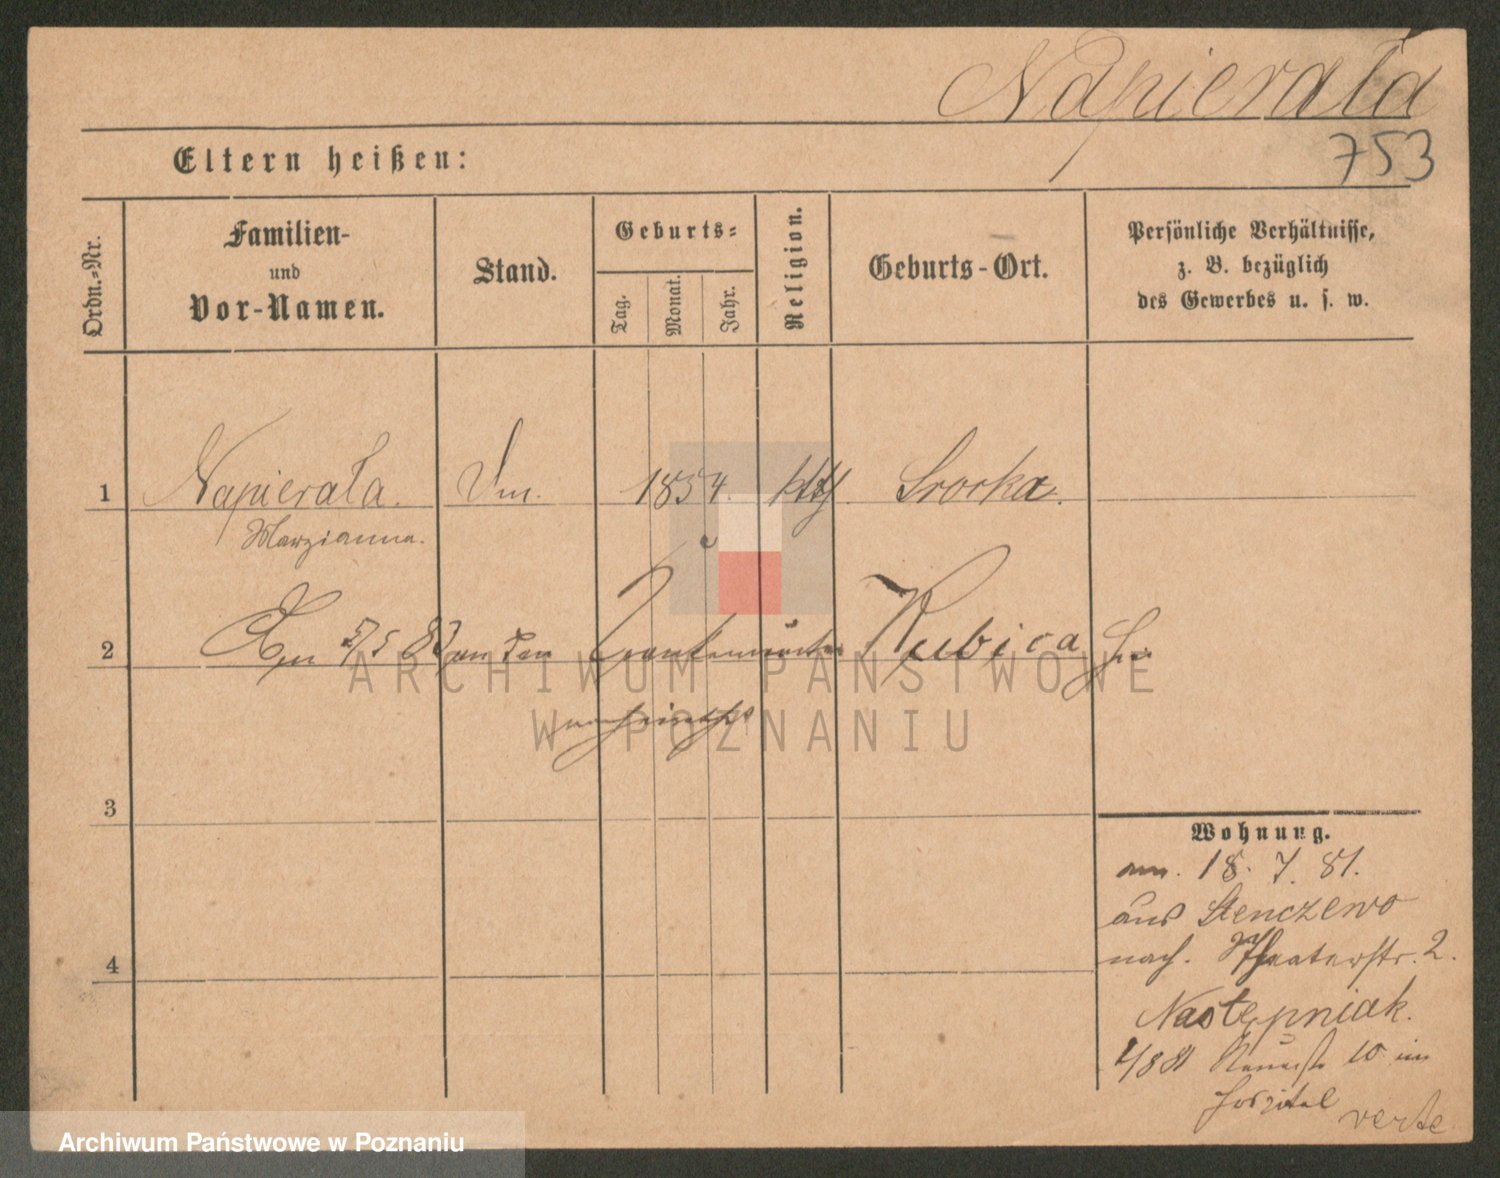 Napierała
753
Eltern heißen:
Ordn.-Nr.
Familien-
und
Vor-Namen.
Stand.
Geburts-
Tag.
Monat.
Jahr.
Religion.
Geburts-Ort.
Persönliche Verhältnisse,
z. B. bezüglich
des Gewerbes u. s. w.
1 Napierała. 1854. kth. Srocka.
Marzianna.
2 Am 5/5 82 an den Krankenwärter Kubica
3
4
Wohnung.
am. 18. 7. 81.
aus Stenczewo
nach. Theaterstr. 2.
Następniak.
1/8 81 10 im
Hospital
verte
ARCHIWUM PAŃSTWOWE
W POZNANIU
Archiwum Państwowe w Poznaniu